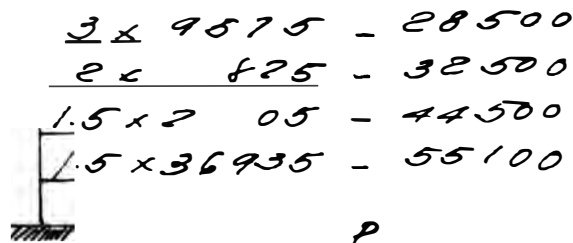 3 x 9575 - 28500
2 x 825 - 32500
1.5 x 2 05 - 44500
1.5 x 36935 - 55100
P